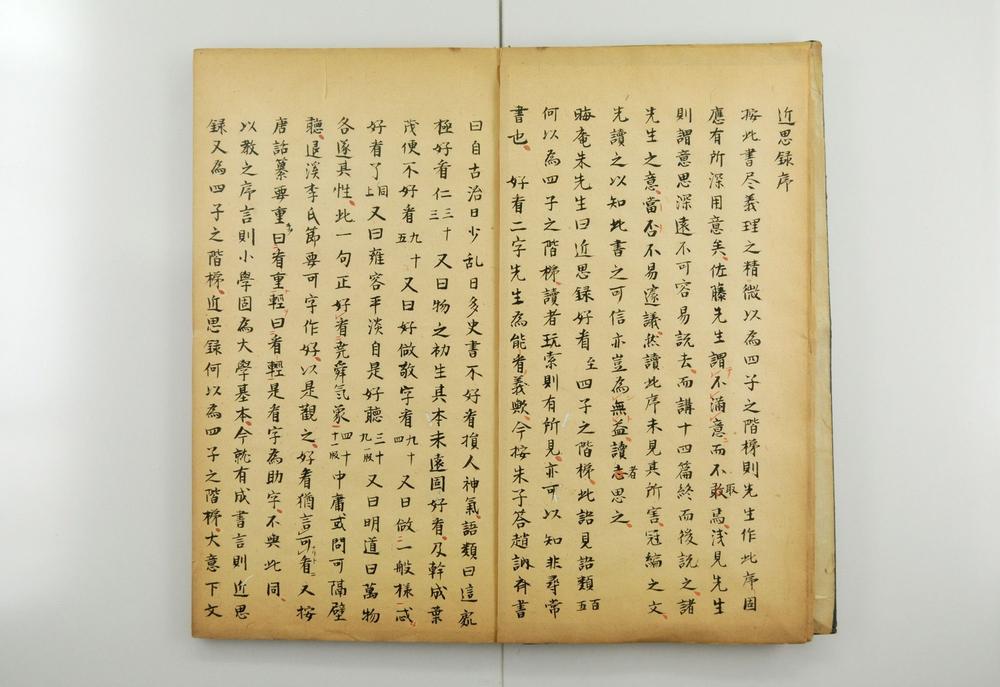 近思録序
按此書尽義理之精微以為四子之階梯則先生作此序固
應有所深用意矣佐藤先生謂不滿意而不敢取焉浅見先生
則謂意思深遠不可容易説去而講十四篇終而後説之諸
先生之意當否不易遽議然讀此序未見其所害冠編之文
先讀之以知此書之可信亦豈為無益讀者思之
晦庵朱先生曰近思録好看至四子之階梯此語見語類百五
何以為四子之階梯讀者玩索則有所見亦可以知非尋常
書也 好看二字先生為能看義歟今按朱子荅趙訥斉書
曰自古治日少乱日多史書不好看損人神氣語類曰這家
極好看仁三十三又曰物之初生其本未遠固好看及幹成葉
茂便不好看九十五又曰好做敬字看九十四又曰做一般様
好看了同上又曰雍容平淡自是好聴三十九一版又曰明道曰萬物
各遂其性此一句正好看尭舜氣象四十十一版中庸或問可隔壁
聴退溪李氏節要可字作好以是觀之好看猶言可看又按
唐話纂要重曰看重輕曰看輕是看字為助字不與此同
以教之序言則小學固為大學基本今就有成書言則近思
録又為四子之階梯近思録何以為四子之階梯大意下文